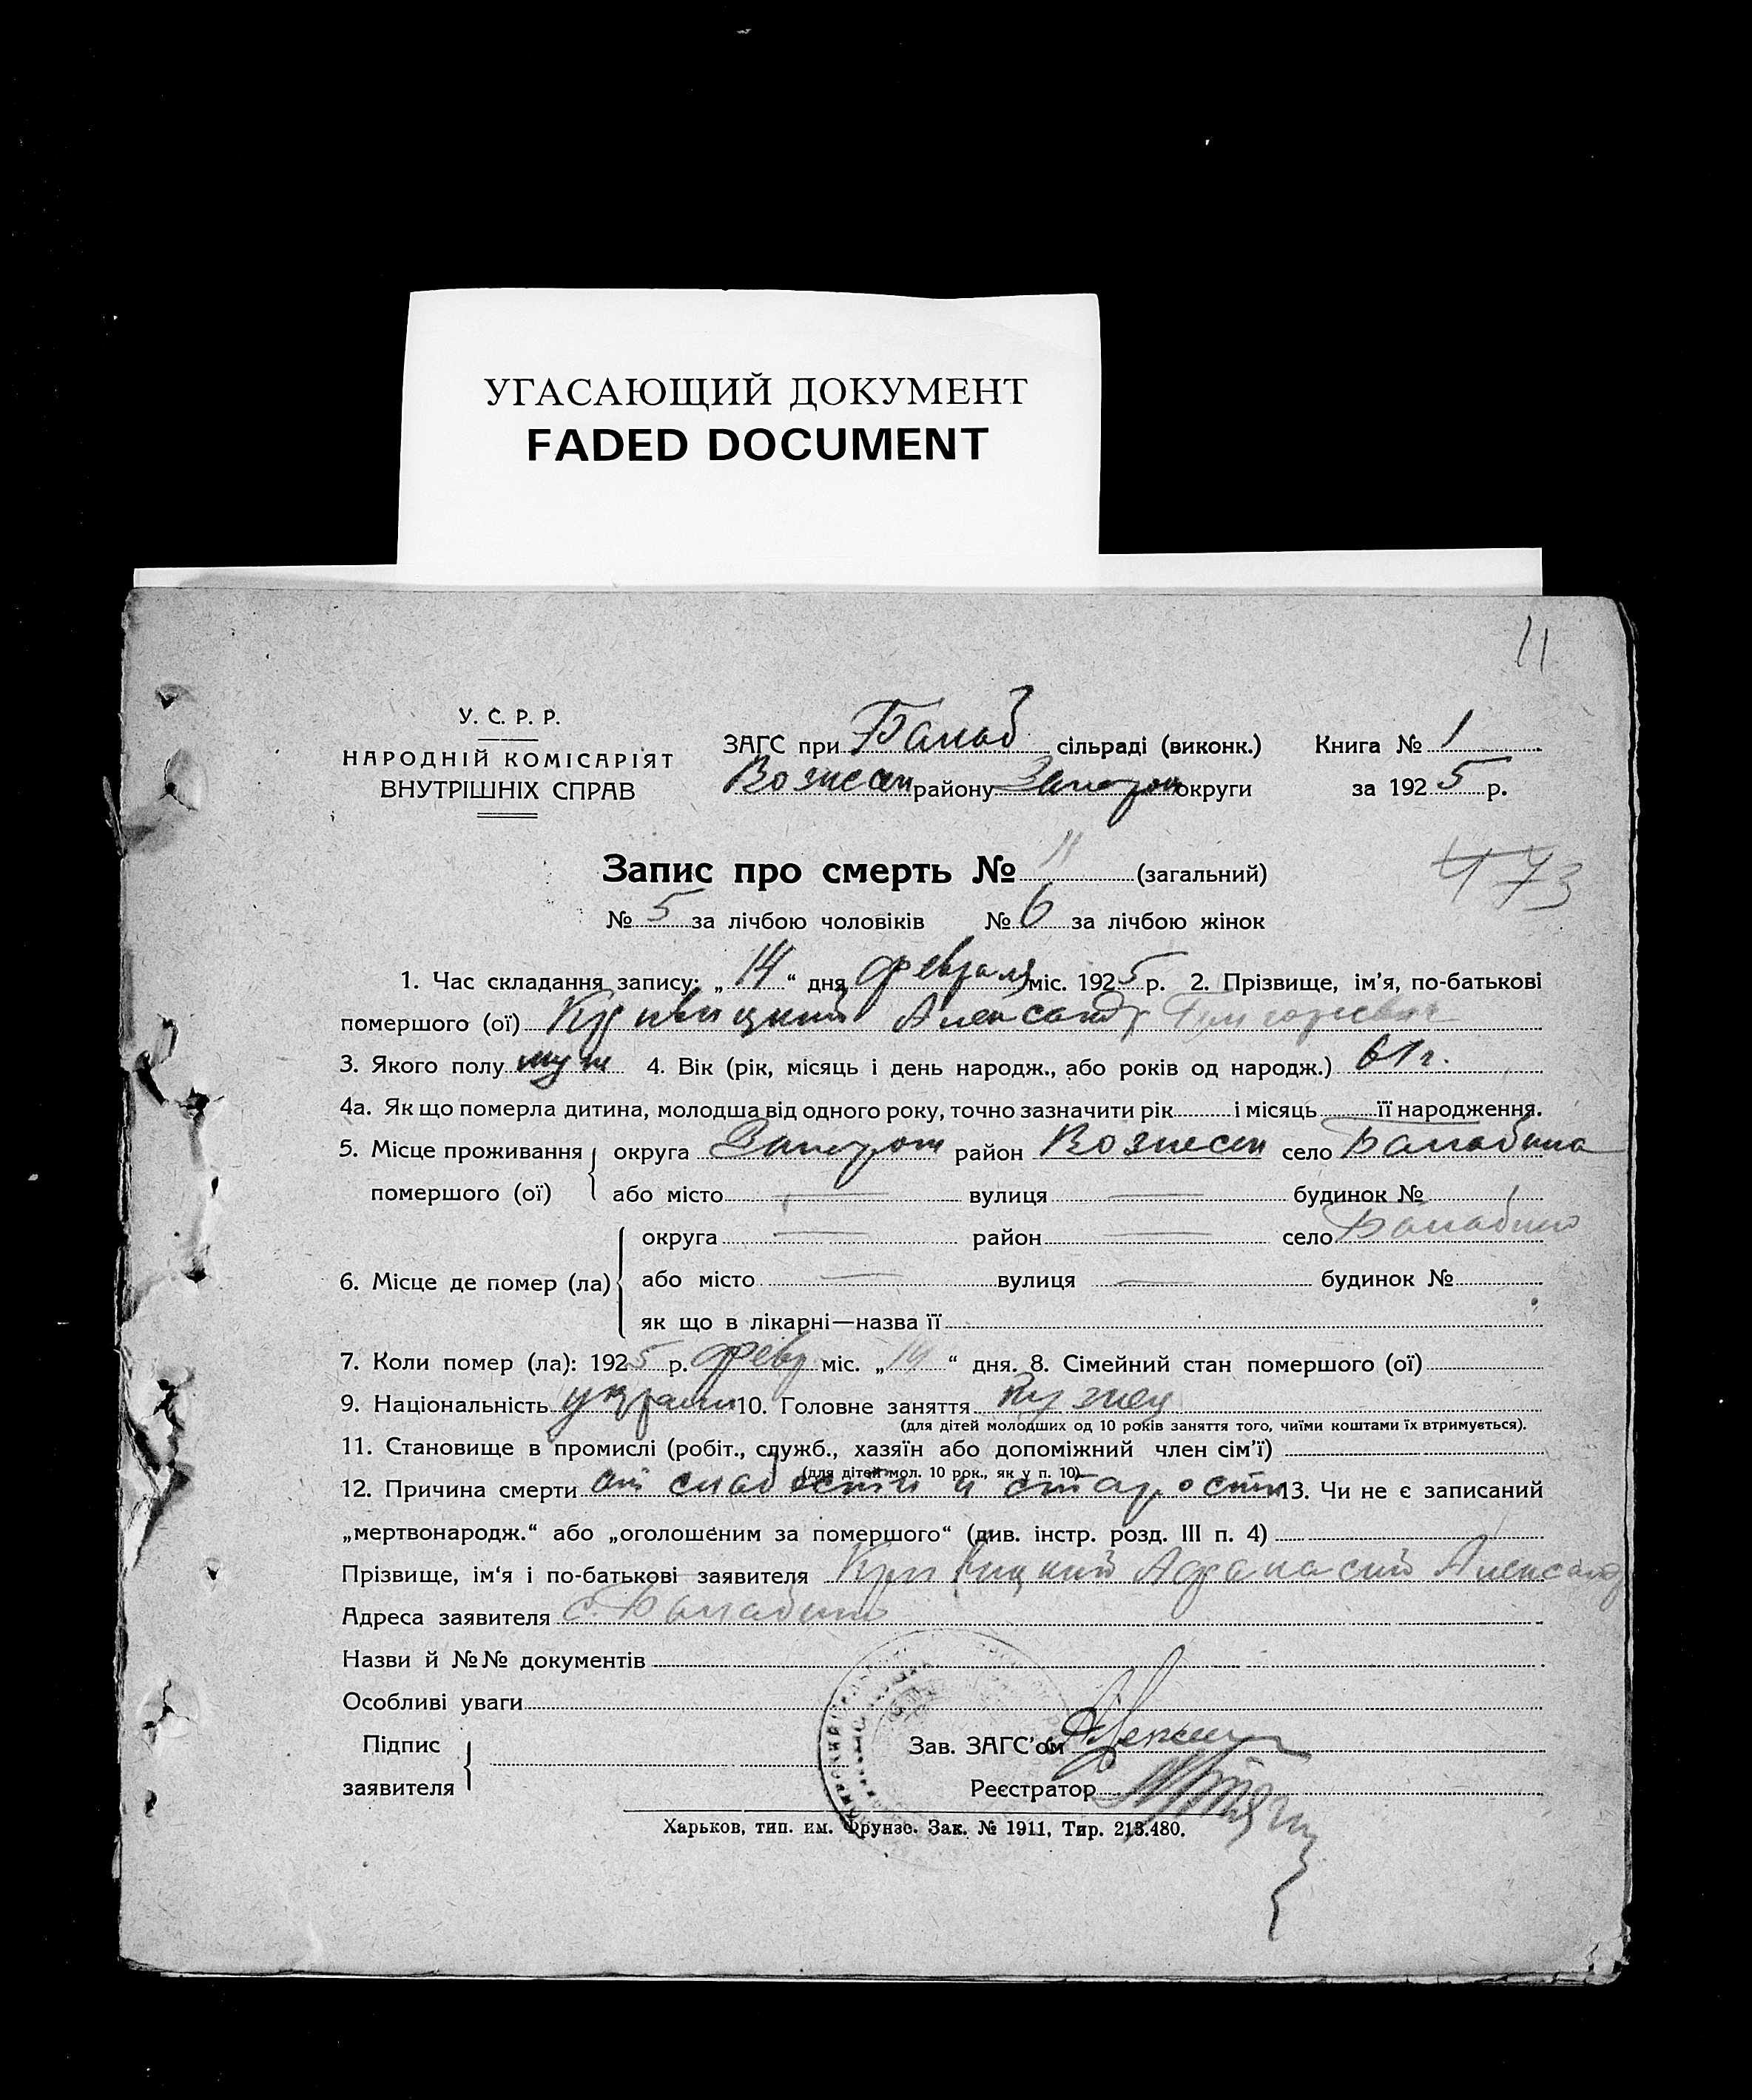 УГАСАЮЩИЙ ДОКУМЕНТ
FADED DOCUMENT
11
У. С. Р. Р.
НАРОДНІЙ КОМІСАРІЯТ
ВНУТРІШНІХ СПРАВ
ЗАГС при Балаб сільраді (виконк.) Книга № 1
Вознесен району Запорож округи за 1925 р.
Запис про смерть № 11 (загальний)
473
№ 5 за лічбою чоловіків № 6 за лічбою жінок
1. Час складання запису: „ 14 “ дня февраля міс. 1925 р. 2. Прізвище, ім'я, по-батькові
помершого (ої) Кривицкий Александр Григорьевич
3. Якого полу муж 4. Вік (рік, місяць і день народж., або років од народж.) 61 г.
4а. Як що померла дитина, молодша від одного року, точно зазначити рік і місяць її народження.
5. Місце проживання округа Запорож район Вознесен село Балабина
помершого (ої) або місто — вулиця — будинок №
округа — район — село Балабино
6. Місце де помер (ла) або місто — вулиця — будинок №
як що в лікарні—назва її
7. Коли помер (ла): 1925 р. февр міс. „ 14 “ дня. 8. Сімейний стан помершого (ої)
9. Національність украин 10. Головне заняття кузнец
(для дітей молодших од 10 років заняття того, чиїми коштами їх втримується).
11. Становище в промислі (робіт., служб., хазяїн або допоміжний член сім'ї)
(для дітей мол. 10 рок., як у п. 10)
12. Причина смерти от слабости и старости 13. Чи не є записаний
„мертвонародж.“ або „оголошеним за помершого“ (див. інстр. розд. III п. 4)
Прізвище, ім'я і по-батькові заявителя Кривицкий Афанасий Александр
Адреса заявителя с. Балабино
Назви й №№ документів
Особливі уваги
Підпис
заявителя
Зав. ЗАГС'ом
Реєстратор
Харьков, тип. им. Фрунзе. Зак. № 1911, Тир. 213.480.